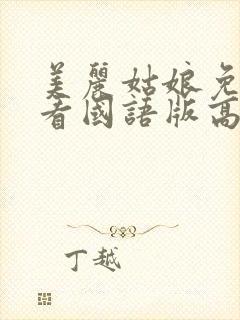 美麗姑娘免
看國語版高
丁越